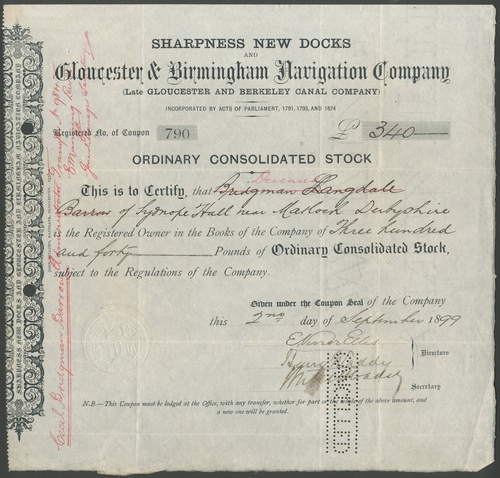 SHARPNESS NEW DOCKS
AND
Gloucester & Birmingham Navigation Company
(LATE GLOUCESTER AND BERKELEY CANAL COMPANY)
INCORPORATED BY ACTS OF PARLIAMENT, 1791, 1793, AND 1874
Registered No. of Coupon 790
£ 340
ORDINARY CONSOLIDATED STOCK
Deceased
This is to Certify, that Bridgman Langdale
Barrow of Sydnope Hall near Matlock Derbyshire
is the Registered Owner in the Books of the Company of Three hundred
and forty Pounds of Ordinary Consolidated Stock,
subject to the Regulations of the Company.
Given under the Coupon Seal of the Company
this 2nd day of September 1899
Directors
Secretary
CANCELLED
N.B.—This Coupon must be lodged at the Office, with any transfer, whether for part or the whole of the above amount, and
a new one will be granted.
SHARPNESS NEW DOCKS AND GLOUCESTER AND BIRMINGHAM NAVIGATION COMPANY
Cecil Bridgman Barrow